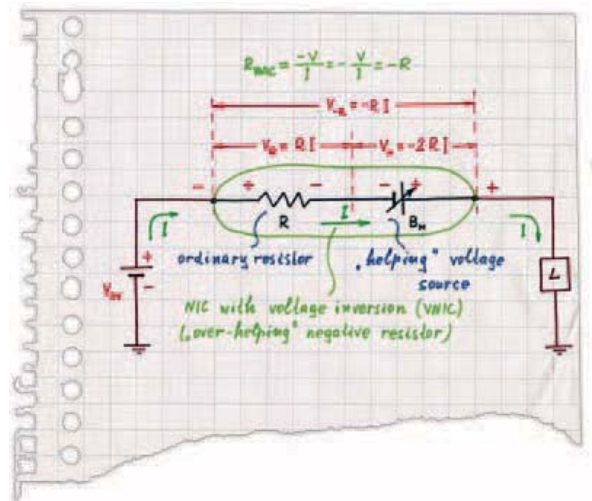 R_VNIC = -V/I = -V/I = -R
V_-R = -R I
V_R = R I V_H = -2R I
- + - - + +
R I B_H
I I
ordinary resistor „helping" voltage
source
+
-
V_IN
L
NIC with voltage inversion (VNIC)
(„over-helping" negative resistor)